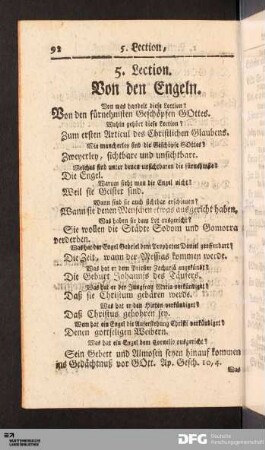 92 5. Lection,
5. Lection.
Von den Engeln.
Von was handelt diese Lection?
Von den fürnehmsten Geschöpfen GOttes.
Wohin gehöret diese Lection?
Zum ersten Articul des Christlichen Glaubens.
Wie mancherley sind die Geschöpfe GOttes?
Zweyerley, sichtbare und unsichtbare.
Welches sind unter denen unsichtbaren die fürnehmste?
Die Engel.
Warum siehet man die Engel nicht?
Weil sie Geister sind.
Wann sind sie auch sichtbar erschienen?
Wann sie denen Menschen etwas ausgericht haben.
Was haben sie dem Lot ausgericht?
Sie wollen die Städte Sodom und Gomorra
verderben.
Was hat der Engel Gabriel dem Propheten Daniel geoffenbart?
Die Zeit, wann der Messias kommen werde.
Was hat er dem Priester Zachariä angekündt?
Die Geburt Johannis des Täufers.
Was hat er der Jungfrau Maria verkündiget?
Daß sie Christum gebären werde.
Was hat er den Hirten verkündiget?
Daß Christus gebohren sey.
Wem hat ein Engel die Auferstehung Christi verkündiget?
Denen gottseligen Weibern.
Was hat ein Engel dem Cornelio ausgericht?
Sein Gebett und Almosen seyen hinauf kommen
ins Gedächtnuß vor GOtt. Ap. Gesch. 10, 4.
Was
DFG Deutsche
Forschungsgemeinschaft